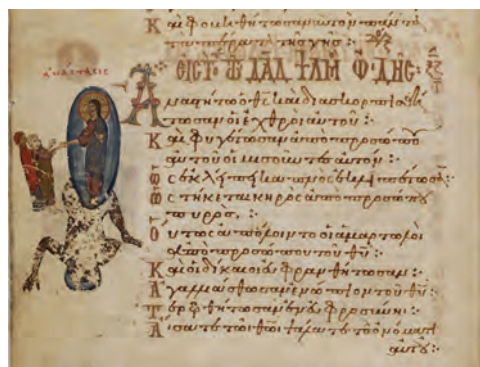 Καὶ φοβηθήτωσαν αὐτὸν πάντα
τὰ πέρατα τῆς γῆς :·
ἀνάστασις
ΕΙΣ Τ ΔΑΔ ΨΛΜ ΩΔΗΣ :· ξζ
Ἀναστήτω ὁ θς καὶ διασκορπισθή
τωσαν οἱ ἐχθροὶ αὐτοῦ :·
Καὶ φυγέτωσαν ἀπὸ προσώπου
αὐτοῦ οἱ μισοῦντες αὐτόν :·
Ὡς ἐκλείπει καπνὸς ἐκλιπέτωσαν :·
Ὡς τήκεται κηρὸς ἀπὸ προσώπου
πυρός :·
Οὕτως ἀπόλοιντο οἱ ἁμαρτωλοὶ
ἀπὸ προσώπου τοῦ θυ :·
Καὶ οἱ δίκαιοι εὐφρανθήτωσαν :·
Ἀγαλλιάσθωσαν ἐνώπιον τοῦ θυ :·
Τερφθήτωσαν ἐν εὐφροσύνη :·
Ἄσατε τῶ θω ψάλατε τῶ ὀνόματι
αὐτοῦ :·